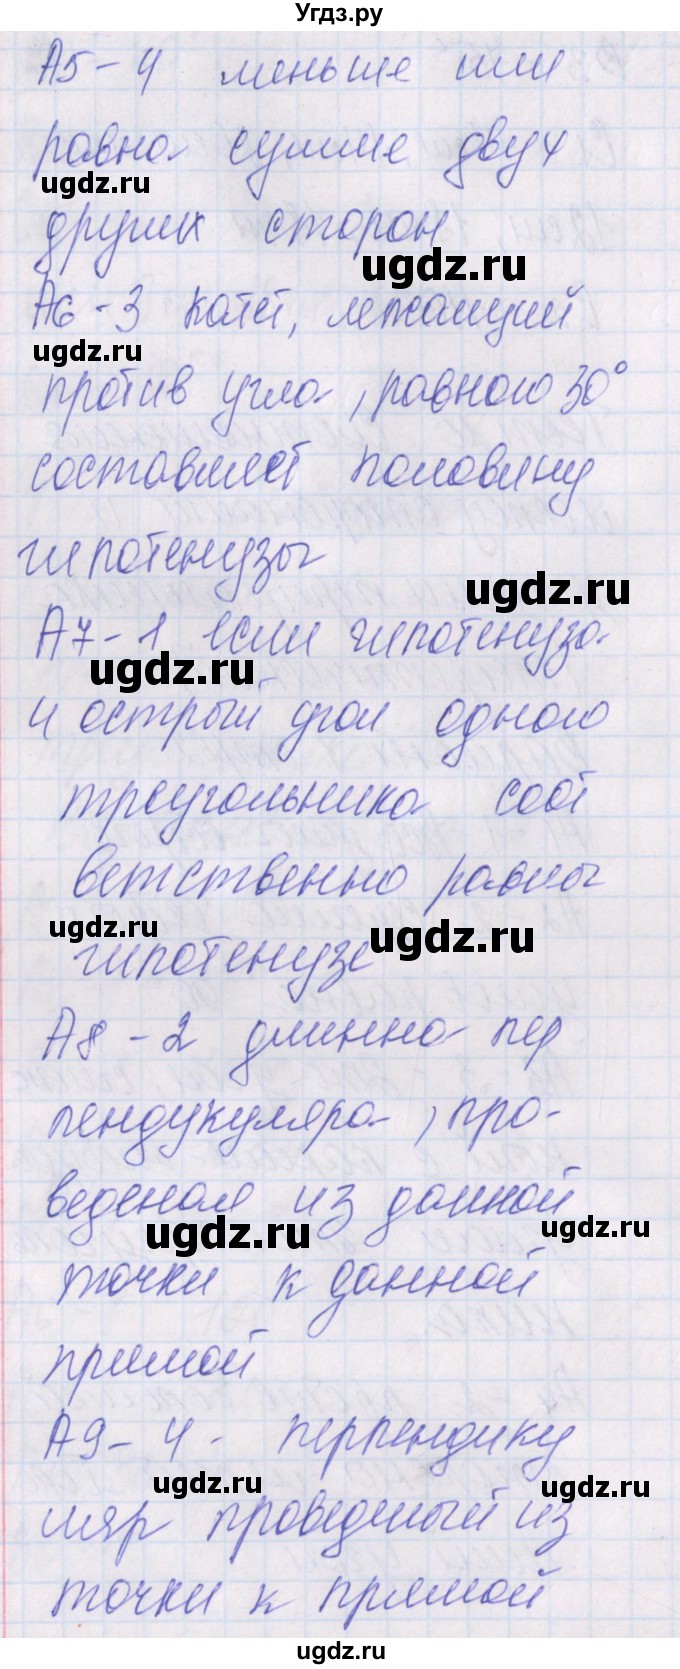 Угдз.ру
А5-4 меньше или
равна сумме двух
ugdz.ru
других сторон
ugdz.ru
А6-3 катет, лежащий
ugdz.ru
против угла, равного 30°
составляет половину
гипотенузы
ugdz.ru
А7-1 если гипотенуза
ugdz.ru
и острый угол одного
треугольника соот
ветственно равны
ugdz.ru
ugdz.ru
гипотенузе
А8-2 длинна пер
пендукуляра, про-
веденая из данной
ugdz.ru
ugdz.ru
точки к данной
прямой
А9-4- перпендику
ugdz.ru
ugdz.ru
ляр проведеный из
точки к прямой
ugdz.ru